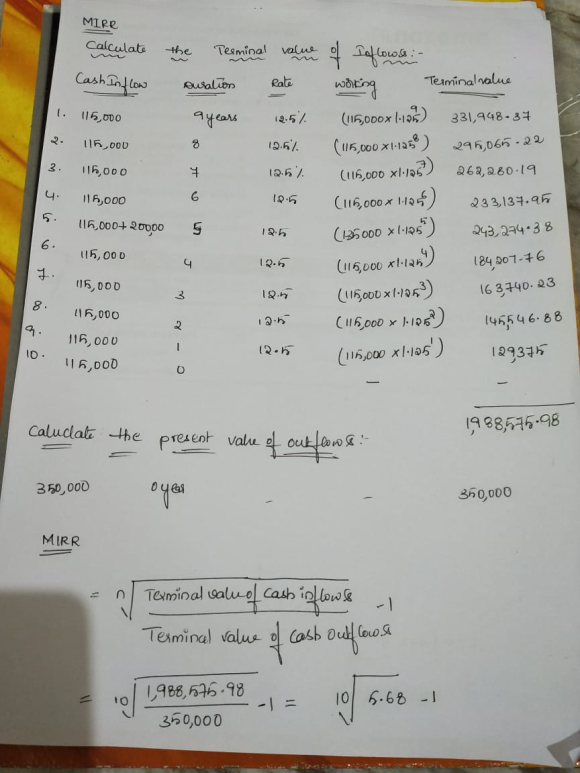 MIRR
Calculate the Terminal value of Inflows:-
Cash Inflow Duration Rate working Terminal value
1. 115,000 9 years 12.5% (115,000 x 1.125^9) 331,948.37
2. 115,000 8 12.5% (115,000 x 1.125^8) 295,065.22
3. 115,000 7 12.5% (115,000 x 1.125^7) 262,280.19
4. 115,000 6 12.5 (115,000 x 1.125^6) 233,137.95
5. 115,000+20,000 5 12.5 (135000 x 1.125^5) 243,274.38
6. 115,000 4 12.5 (115,000 x 1.125^4) 184,207.76
7. 115,000 3 12.5 (115,000 x 1.125^3) 163,740.23
8. 115,000 2 12.5 (115,000 x 1.125^2) 145,546.88
9. 115,000 1 12.5 (115,000 x 1.125^1) 129,375
10. 115,000 0 – –
1,988,575.98
Caluclate the present value of outflows:-
350,000 0 year - - 350,000
MIRR
= n√ Terminal value of Cash inflows -1
Terminal value of Cash Outflows
= 10√ 1,988,575.98 -1 = 10√ 5.68 -1
350,000